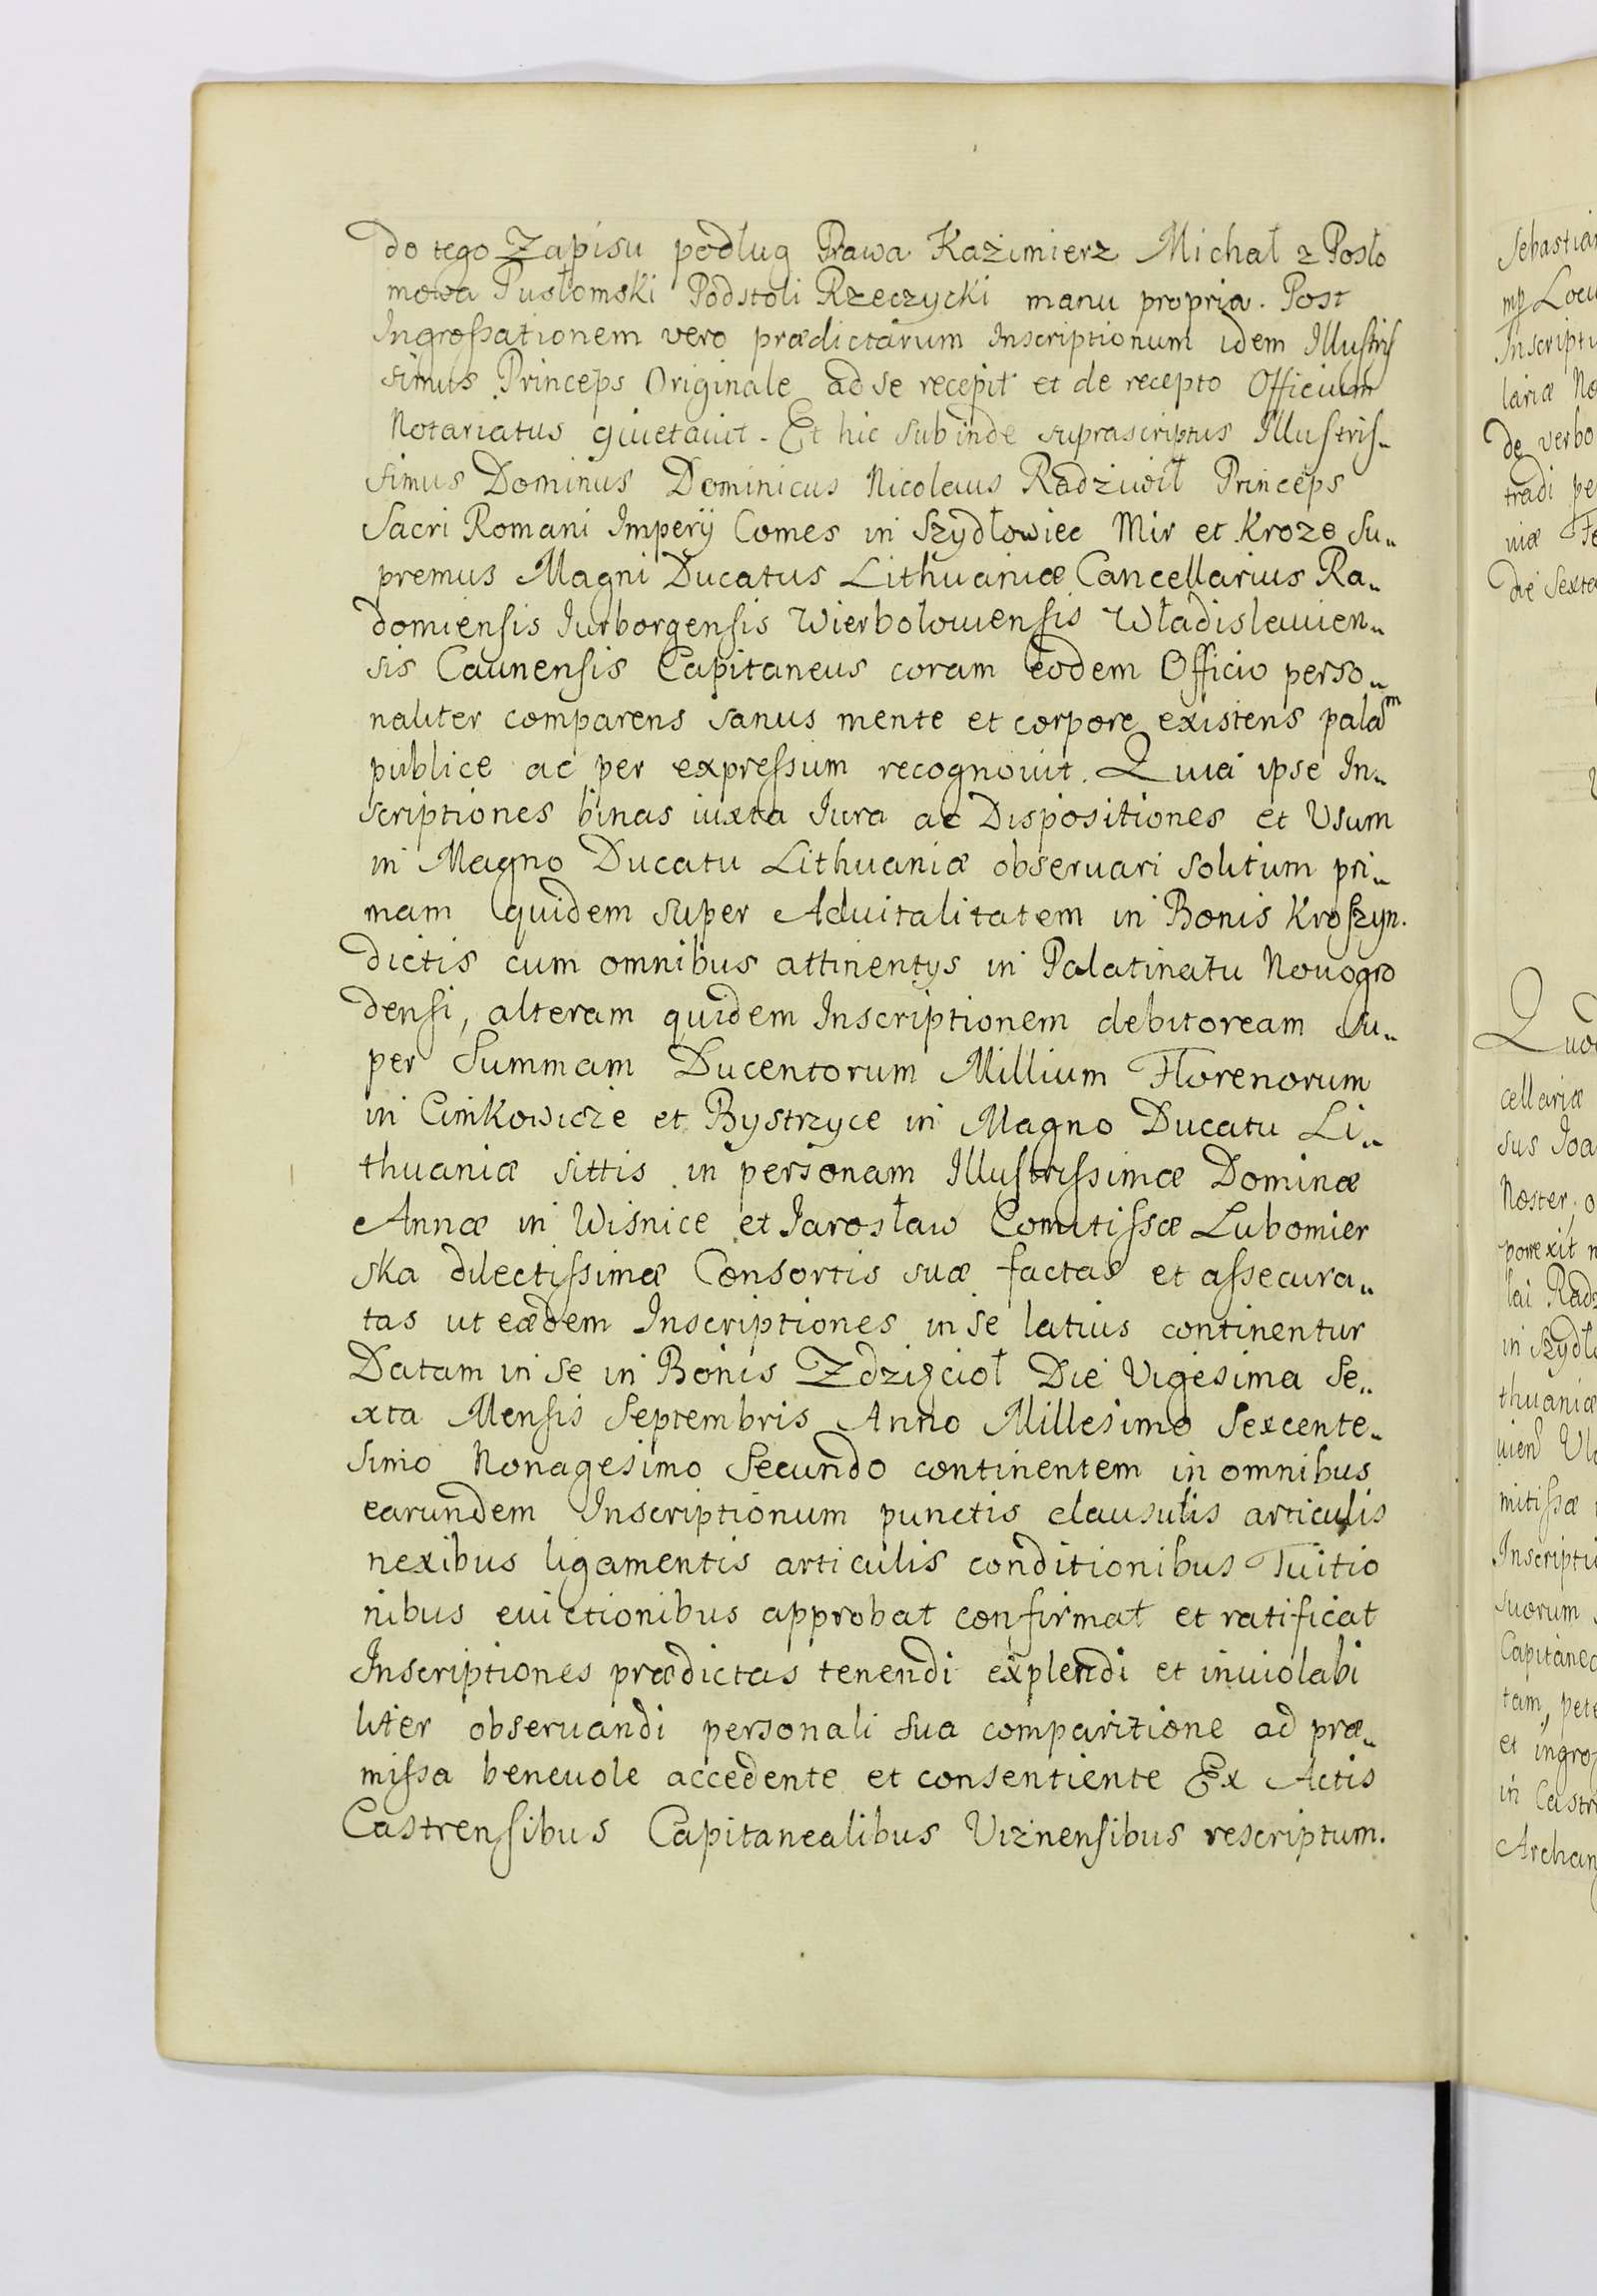 do tego Zapisu podlug Prawa Kazimierz Michał z Posło
mowa Pusłomski Podstoli Rzeczycki manu propria. Post
Ingrossationem vero prædictarum Inscriptionum idem Illustris
simus Princeps Originale ad se recepit et de recepto Officium
Notariatus quietauit. Et hic subinde suprascriptus Illustris„
simus Dominus Dominicus Nicolaus Radziwił Princeps
Sacri Romani Imperÿ Comes in Szydłowiec Mir et Kroze Su„
premus Magni Ducatus Lithuaniæ Cancellarius Ra„
domiensis Iurborgensis Wierbolowensis Władislauien„
sis Caunensis Capitaneus coram eodem Officio perso„
naliter comparens sanus mente et corpore existens palam
publice ac per expressum recognouit. Quia ipse In„
scriptiones binas iuxta Iura ac Dispositiones et Usum
in Magno Ducatu Lithuaniæ obseruari solitum pri„
mam quidem super Aduitalitatem in Bonis Kroszyn.
dictis cum omnibus attinentÿs in Palatinatu Nouogro
densi, alteram quidem Inscriptionem debitoream su„
per Summam Ducentorum Millium Florenorum
in Cimkowicze et Bystrzyce in Magno Ducatu Li„
thuaniæ sittis in personam Illustrissimæ Dominæ
Annæ in Wisnice et Iarosław Comitissæ Lubomier
ska dilectissimæ Consortis suæ factas et assecura„
tas ut eædem Inscriptiones in se latius continentur
Datam in se in Bonis Zdzięcioł Die Vigesima Se„
xta Mensis Septembris Anno Millesimo Sexcente„
simo Nonagesimo Secundo continentem in omnibus
earundem Inscriptionum punctis clausulis articulis
nexibus ligamentis articulis conditionibus Tuitio
nibus euictionibus approbat confirmat et ratificat
Inscriptiones prædictas tenendi explendi et inuiolabi
liter obseruandi personali sua comparitione ad præ„
missa beneuole accedente et consentiente Ex Actis
Castrensibus Capitanealibus Viznensibus rescriptum.
Sebastian
mp Locu
Inscripti
lariæ No
de verbo
tradi pe
niæ Fe
die Sexta
Quo
cellariæ
sus Ioa
Noster, o
porrexit n
lai Radz
in Szydł
thuaniæ
uien Vl
mitissæ
Inscripti
suorum
Capitane
tam, pete
et ingro
in Castr
Archan